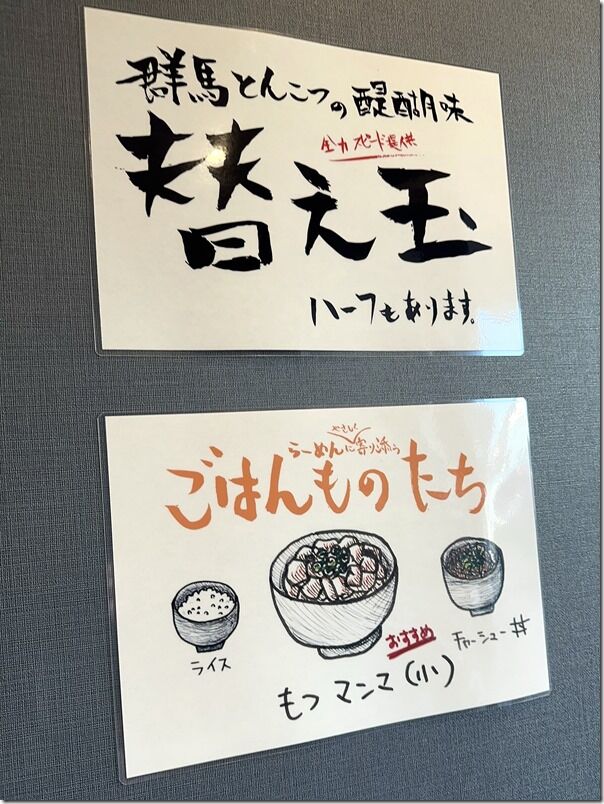 群馬とんこつの醍醐味
全力スピード提供
替え玉
ハーフもあります。
やさしく
らーめんに寄り添う
ごはんものたち
ライス
おすすめ
もつマンマ(小)
チャーシュー丼